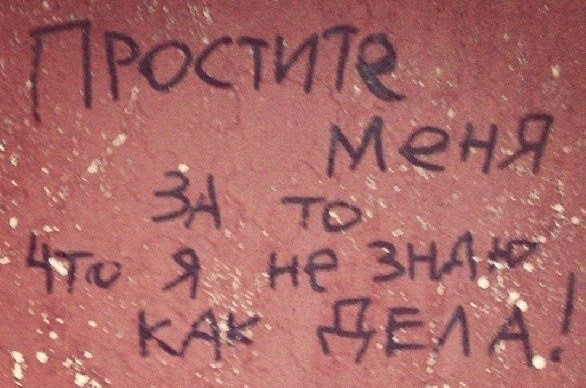 Простите
меня
за то
что я не знаю
как ДЕЛА!